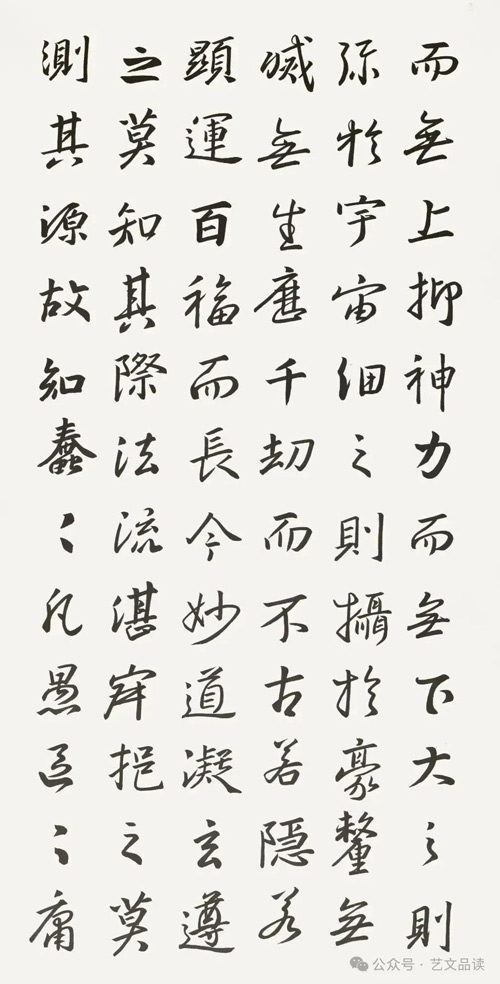 而無上抑神力而無下大之則
弥於宇宙細之則攝於豪釐無
滅無生歷千劫而不古若隱若
顯運百福而長今妙道凝玄遵
之莫知其際法流湛寂挹之莫
測其源故知蠢〻凡愚區〻庸
公众号·艺文品读